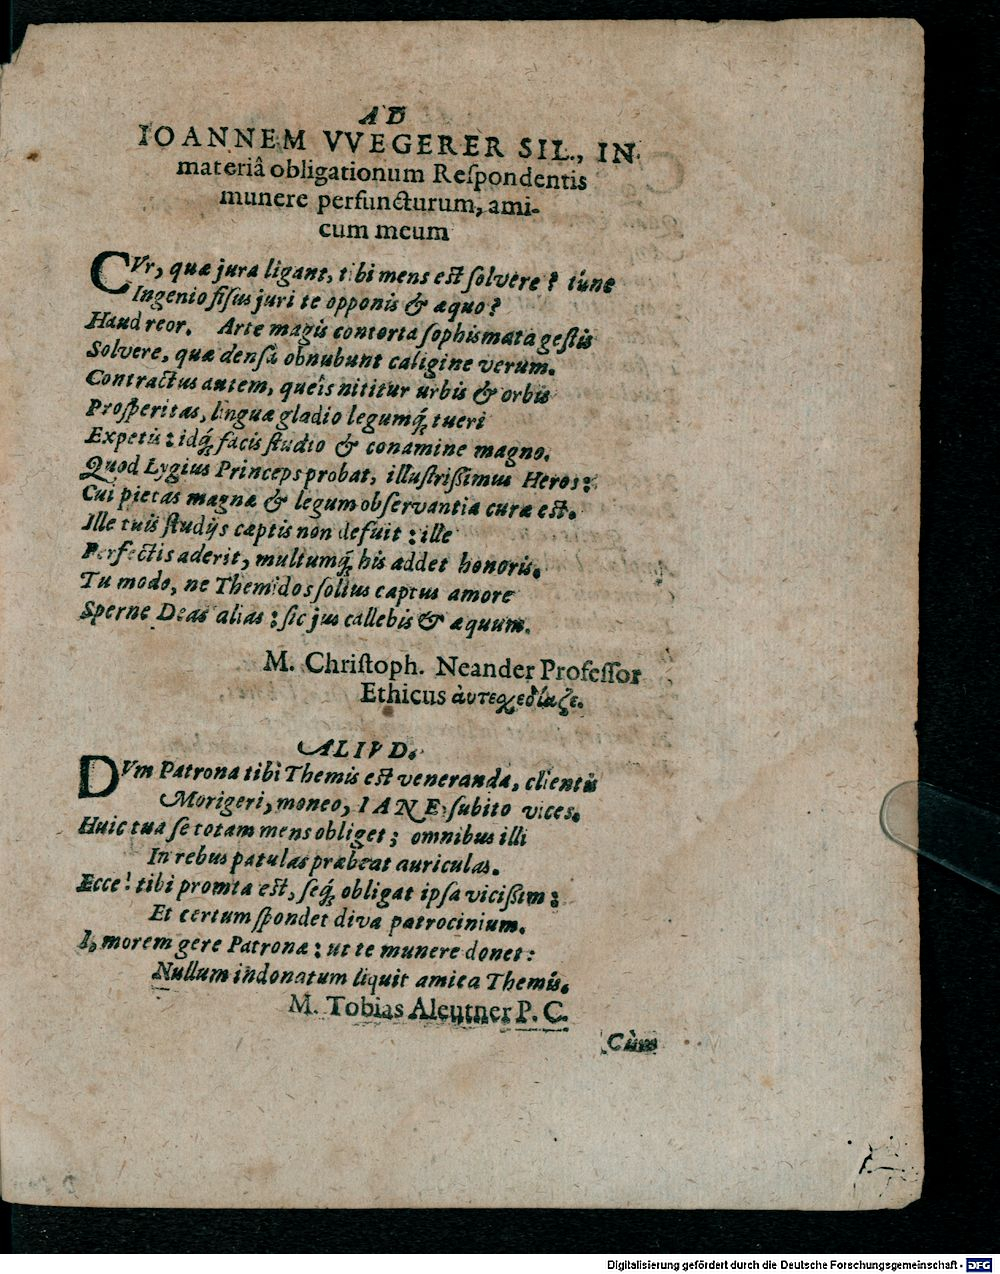 AD
IOANNEM VVEGERER SIL., IN
materiâ obligationum Reſpondentis
munere perfuncturum, ami-
cum meum
CVr, quæ jura ligant, tibi mens est ſolvere? túne
Ingenio fiſus juri te opponis & æquo?
Haud reor. Arte magis contorta ſophismata gestis
Solvere, quæ densâ obnubunt caligine verum.
Contractus autem, queîs nititur urbis & orbis
Proſperitas, linguæ gladio legumq́; tueri
Expetis: idq́; facis ſtudio & conamine magno.
Quod Lygius Princeps probat, illuſtriſſimus Heros:
Cui pietas magnæ & legum obſervantia curæ est.
Ille tuis ſtudijs cœptis non defuit: ille
Perfectis aderit, multumq́; his addet honoris.
Tu modo, ne Themidos ſolius captus amore
Sperne Deas alias: ſic jus callebis & æquum.
M. Chriſtoph. Neander Profeſſor
Ethicus ἀυτεχεδίαζε.
ALIVD.
DVm Patrona tibi Themis est veneranda, clientis
Morigeri, moneo, IANE, ſubito vices.
Huic tua ſe totam mens obliget; omnibus illi
In rebus patulas præbeat auriculas.
Ecce! tibi promta est, ſeq́; obligat ipſa viciſſim:
Et certum ſpondet diva patrocinium.
I, morem gere Patronæ: ut te munere donet:
Nullum indonatum liquit amica Themis.
M. Tobias Aleutner P. C.
Cùm
Digitalisierung gefördert durch die Deutsche Forschungsgemeinschaft - DFG